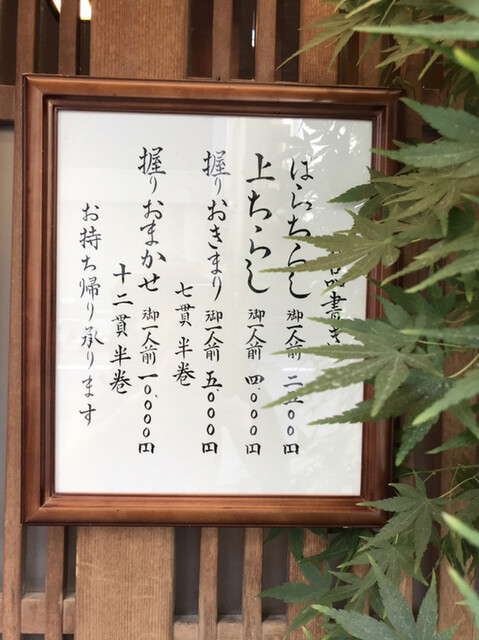 品書き
ばらちらし 御一人前 二、五〇〇円
上ちらし 御一人前 四、〇〇〇円
握りおきまり 御一人前 五、〇〇〇円
七貫半巻
握りおまかせ 御一人前 一〇、〇〇〇円
十二貫半巻
お持ち帰り承ります